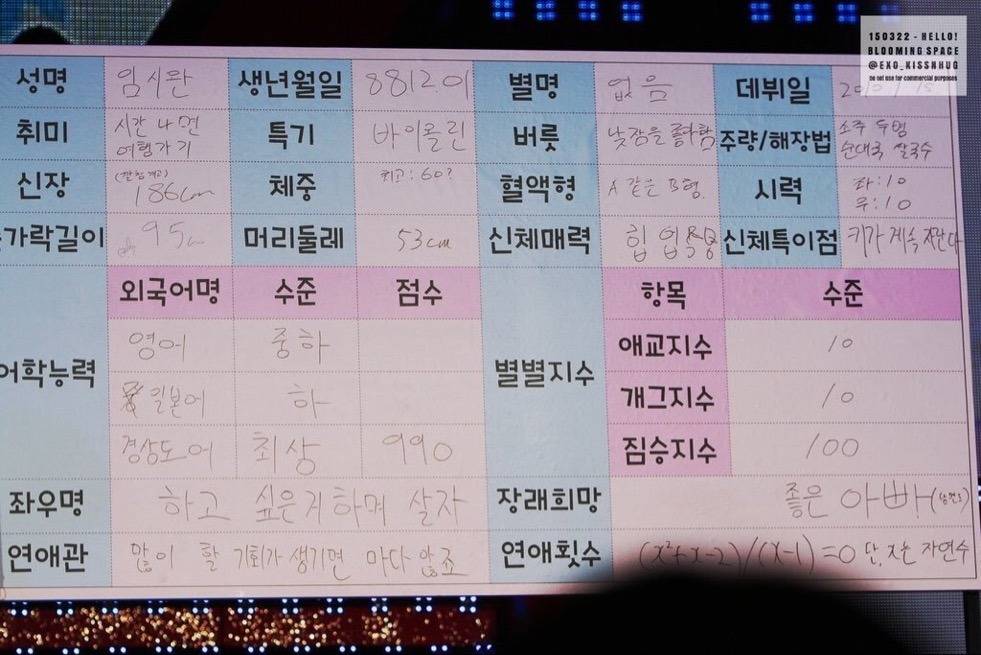 150322 - HELLO!
BLOOMING SPACE
@EXO_KISSNHUG
do not use for commercial purposes
성명 임시완 생년월일 881201 별명 없음 데뷔일
취미 시간 나면 여행가기 특기 바이올린 버릇 낮잠을 좋아함 주량/해장법 소주 두잉 순대국 쌀국수
신장 186cm 체중 최고:60? 혈액형 A 같은 B형. 시력 좌:1.0 우:1.0
가락길이 95 머리둘레 53cm 신체매력 힙업 신체특이점 키가 계속 자란다
외국어명 수준 점수 항목 수준
어학능력 영어 중하 별별지수 애교지수 10
일본어 하 개그지수 10
경상도어 최상 990 짐승지수 100
좌우명 하고 싶은거 하며 살자 장래희망 좋은 아빠
연애관 많이 할 기회가 생기면 마다 않죠 연애횟수 (x²+x-2)/(x-1)=0 단, x는 자연수